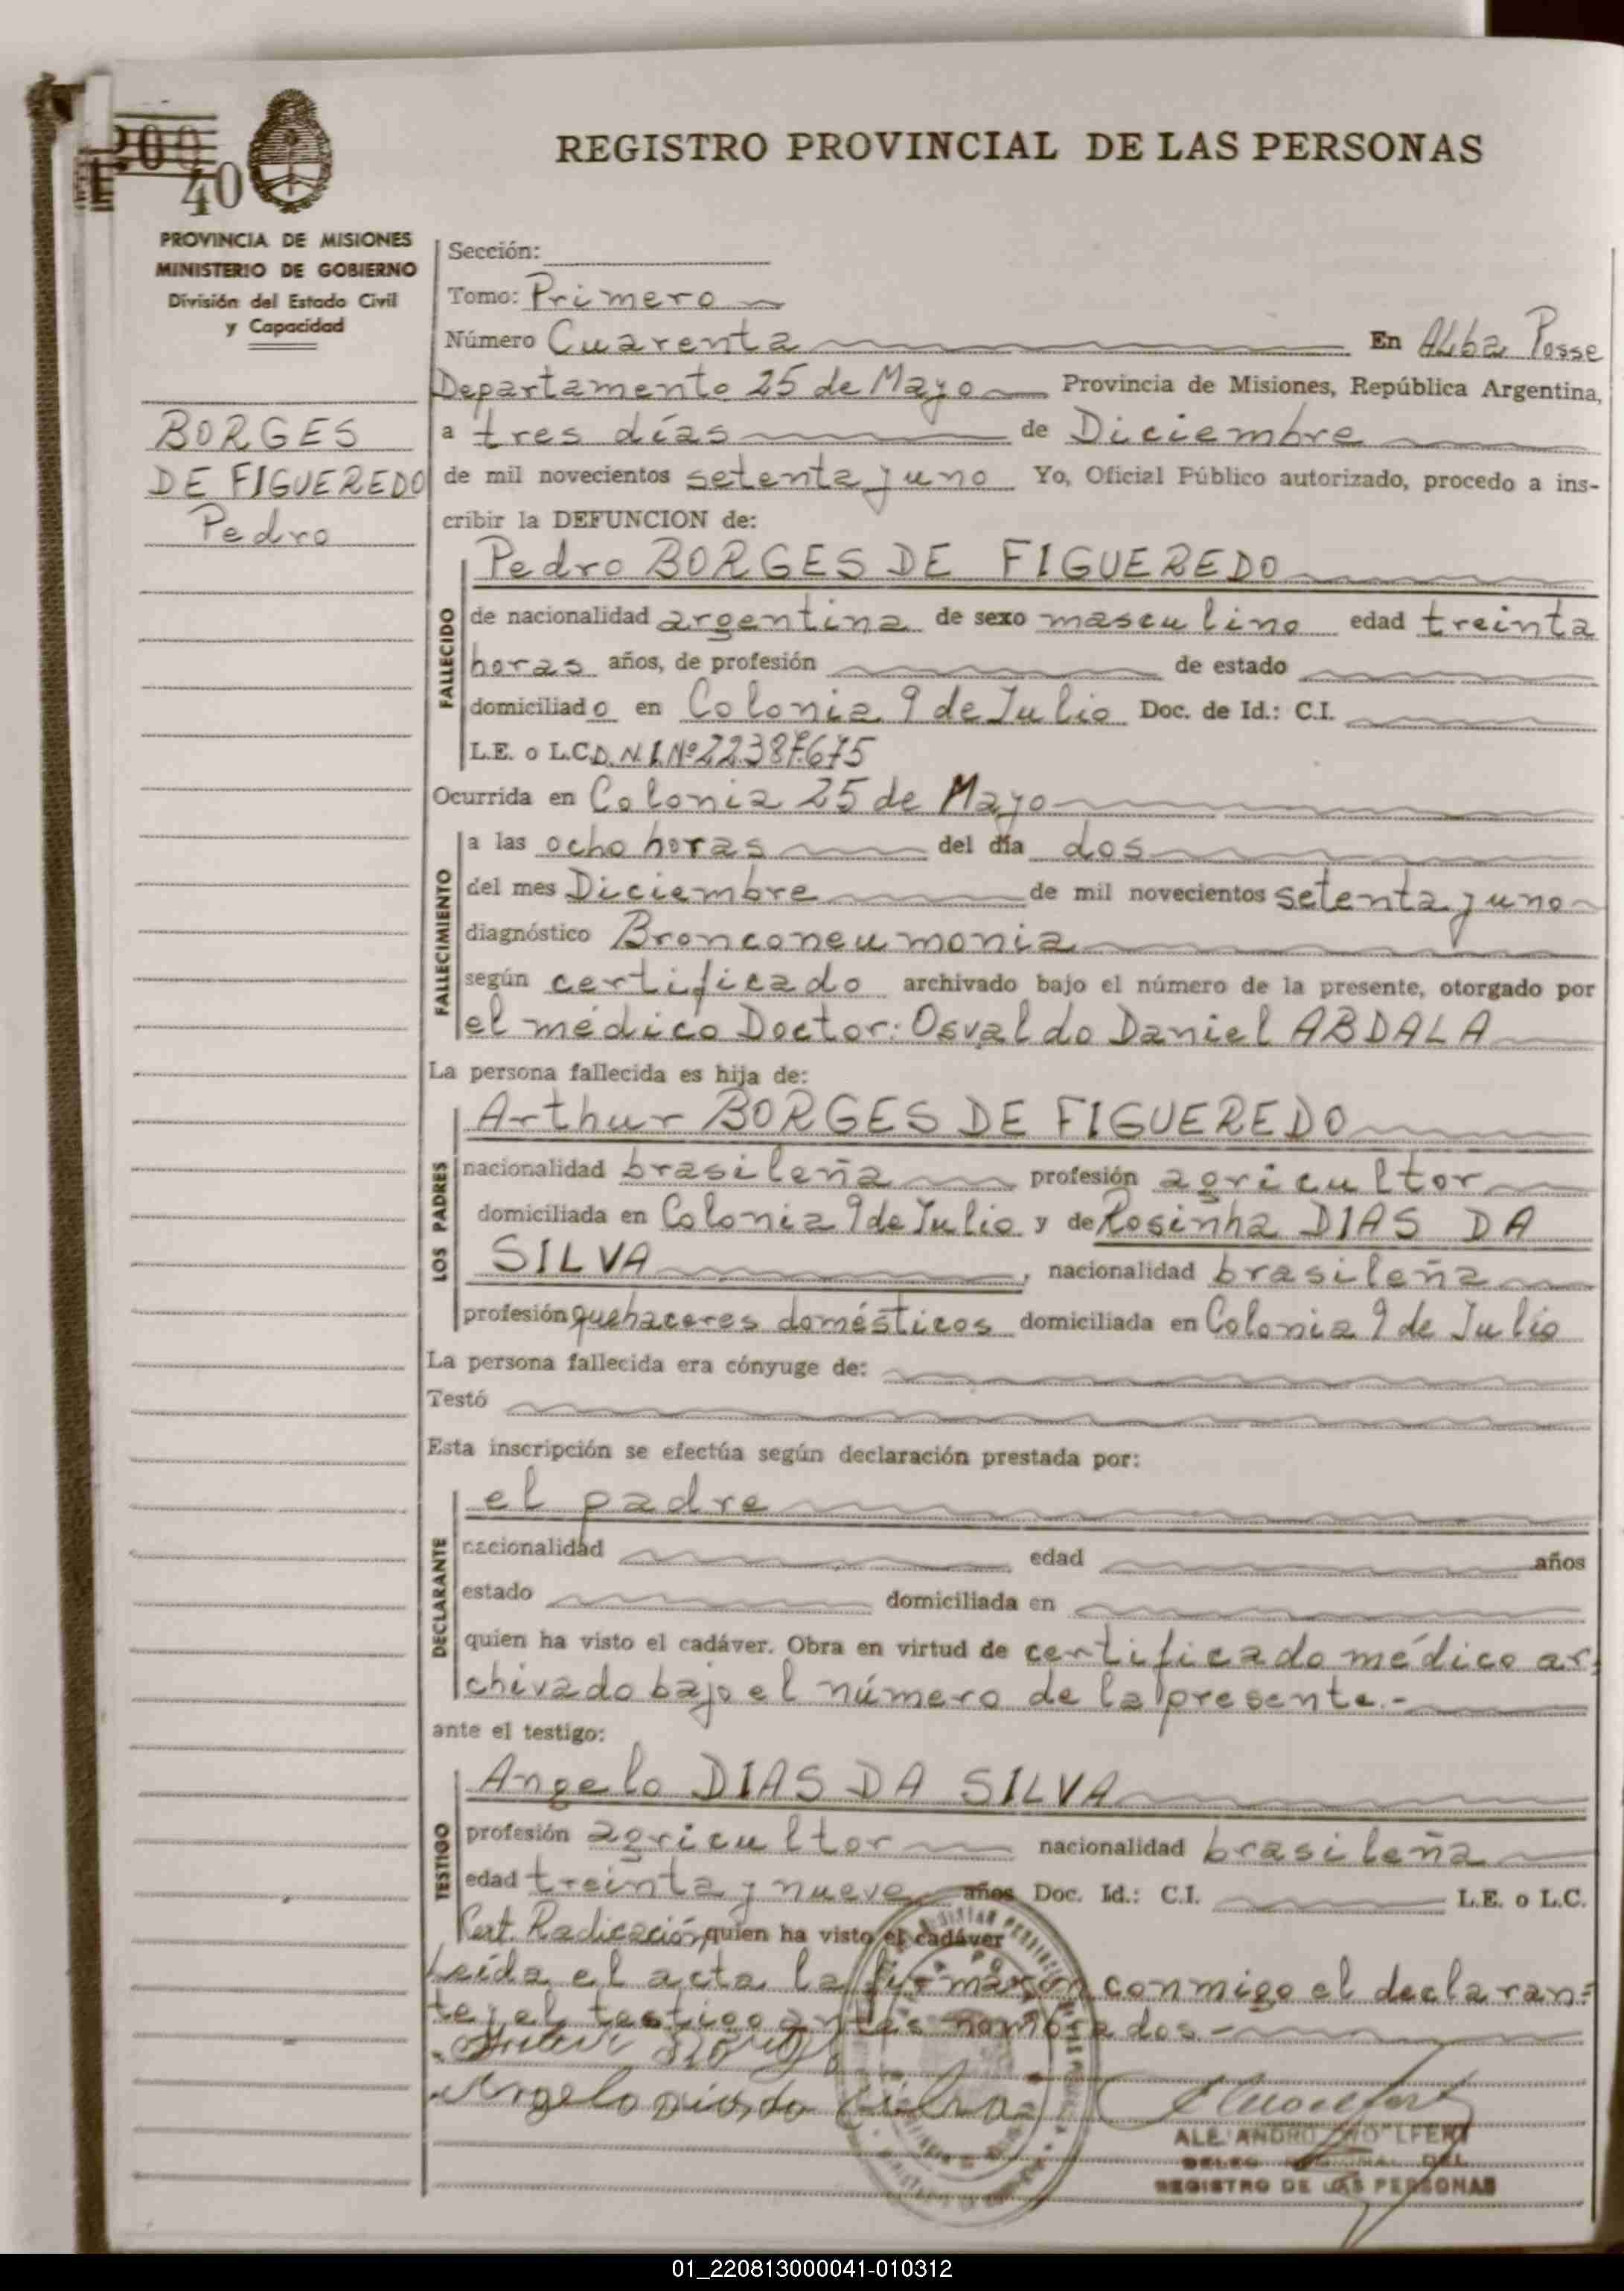 REGISTRO PROVINCIAL DE LAS PERSONAS
40
PROVINCIA DE MISIONES
MINISTERIO DE GOBIERNO
División del Estado Civil
y Capacidad
BORGES
DE FIGUEREDO
Pedro
Sección:
Tomo: Primero
Número Cuarenta En Alba Posse
Departamento 25 de Mayo Provincia de Misiones, República Argentina,
a tres días de Diciembre
de mil novecientos setenta y uno Yo, Oficial Público autorizado, procedo a ins-
cribir la DEFUNCION de:
FALLECIDO
Pedro BORGES DE FIGUEREDO
de nacionalidad argentina de sexo masculino edad treinta
horas años, de profesión de estado
domiciliado en Colonia 9 de Julio Doc. de Id.: C.I.
L.E. o L.C. D.N.I. Nº
Ocurrida en Colonia 25 de Mayo
FALLECIMIENTO
a las ocho horas del día dos
del mes Diciembre de mil novecientos setenta y uno
diagnóstico Bronconeumonia
según certificado archivado bajo el número de la presente, otorgado por
el médico Doctor: Osvaldo Daniel ABDALA
La persona fallecida es hija de:
LOS PADRES
Arthur BORGES DE FIGUEREDO
nacionalidad brasileña profesión agricultor
domiciliada en Colonia 9 de Julio y de Rosinha DIAS DA
SILVA, nacionalidad brasileña
profesión quehaceres domésticos domiciliada en Colonia 9 de Julio
La persona fallecida era cónyuge de:
Testó
Esta inscripción se efectúa según declaración prestada por:
DECLARANTE
el padre
nacionalidad edad años
estado domiciliada en
quien ha visto el cadáver. Obra en virtud de certificado médico ar-
chivado bajo el número de la presente.-
ante el testigo:
TESTIGO
Angelo DIAS DA SILVA
profesión agricultor nacionalidad brasileña
edad treinta y nueve años Doc. Id.: C.I. L.E. o L.C.
Cert. Radicación, quien ha visto el cadáver
Leída el acta la firmaron conmigo el declaran=
te y el testigo antes nombrados.-
Angelo Dias da Silva
ALEJANDRO WOLFERT
REGISTRO DE LAS PERSONAS
01_220813000041-010312